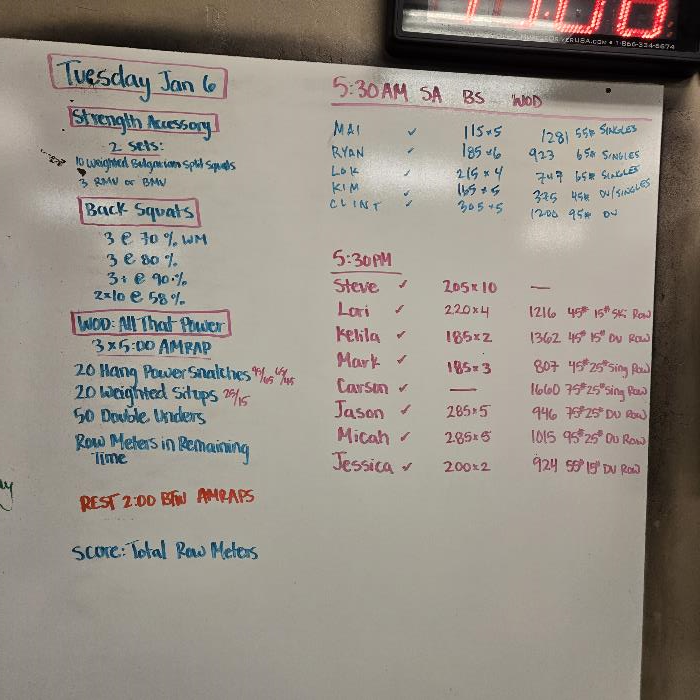 Tuesday Jan 6
Strength Accessory
2 sets:
10 Weighted Bulgarian Split Squats
3 RMU or BMU
Back Squats
3 @ 70% WM
3 @ 80%
3+ @ 90%
2x10 @ 58%
WOD: All That Power
3 x 5:00 AMRAP
20 Hang Power Snatches 95/65 65/45
20 Weighted Situps 25/15
50 Double Unders
Row Meters in Remaining
Time
REST 2:00 BTW AMRAPS
Score: Total Row Meters
5:30AM SA BS WOD
MAI ✓ 115x5 1281 55# SINGLES
RYAN ✓ 185x6 923 65# SINGLES
✓ 215x4 747 65# SINGLES
KIM ✓ 165x5 375 45# DU/SINGLES
CLINT ✓ 305x5 1200 95# DU
5:30PM
Steve ✓ 205x10 —
Lori ✓ 220x4 1216 45# 15# Ski Row
Kelila ✓ 185x2 1362 45# 15# DU Row
Mark ✓ 185x3 807 45# 25# Sing Row
Carson ✓ — 1660 75# 25# Sing Row
Jason ✓ 285x5 946 75# 25# DU Row
Micah ✓ 285x5 1015 95# 25# DU Row
Jessica ✓ 200x2 924 55# 15# DU Row